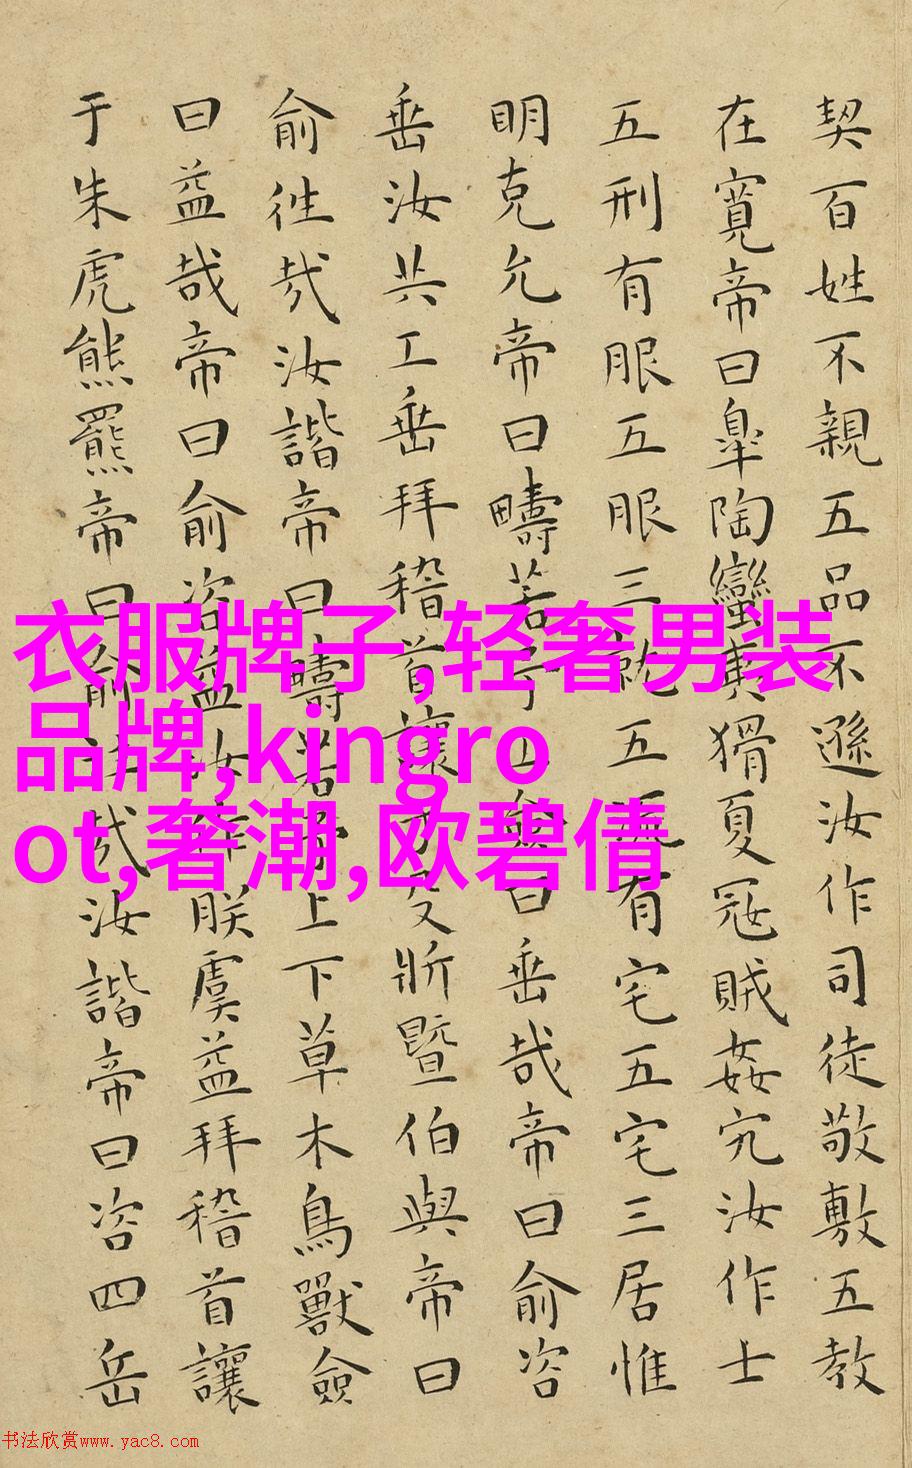 契百姓不親五品不遜汝作司徒敬敷五教
在寬帝曰臯陶蠻夷猾夏冦賊姦宄汝作士
五刑有服五服三就五流有宅五宅三居惟
明克允帝曰疇若予工僉曰垂哉帝曰俞咨
垂汝共工垂拜稽首讓于殳斨暨伯與帝曰
俞徃哉汝諧帝曰疇若予上下草木鳥獸僉
曰益哉帝曰俞咨益汝作朕虞益拜稽首讓
于朱虎熊羆帝曰俞往哉汝諧帝曰咨四岳
衣服牌子,轻奢男装
品牌,kingro
ot,奢潮,欧碧倩
书法欣赏www.yac8.com